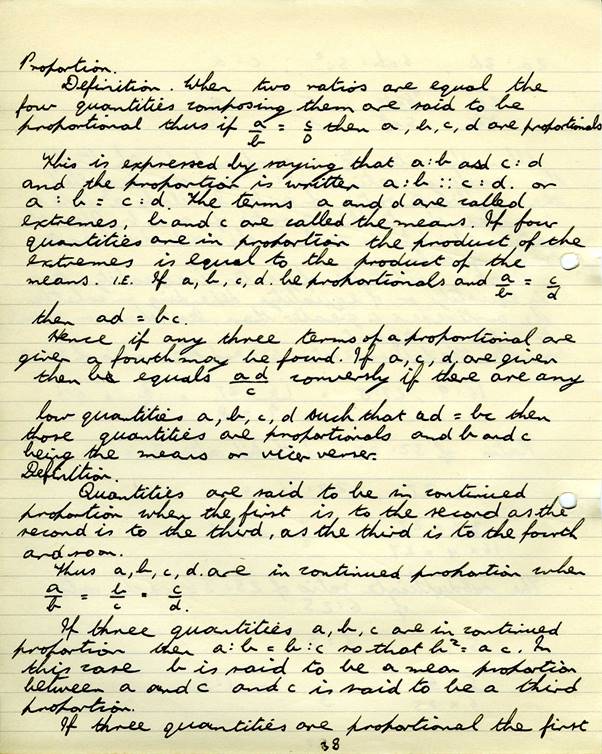 Proportion.
Definition. When two ratios are equal the
four quantities composing them are said to be
proportional thus if a/b = c/D then a, b, c, d are proportionals
This is expressed by saying that a:b and c:d
and the proportion is written a:b :: c:d. or
a : b = c : d. The terms a and d are called
extremes, b and c are called the means. If four
quantities are in proportion the product of the
extremes is equal to the product of the
means. I.E. If a, b, c, d. be proportionals and a/b = c/d
then ad = bc.
Hence if any three terms of a proportional are
given a fourth may be found. If a, c, d, are given
then b equals ad/c conversly if there are any
low quantities a, b, c, d such that ad = bc then
those quantities are proportionals and b and c
being the means or vicer verser.
Definition.
Quantities are said to be in continued
proportion when the first is, to the second as the
second is to the third, as the third is to the fourth
and so on.
Thus a, b, c, d. are in continued proportion when
a/b = b/c = c/d.
If three quantities a, b, c are in continued
proportion then a:b = b:c so that b² = ac. In
this case b is said to be a mean proportion
between a and c and c is said to be a third
proportion.
If three quantities are proportional the first
38